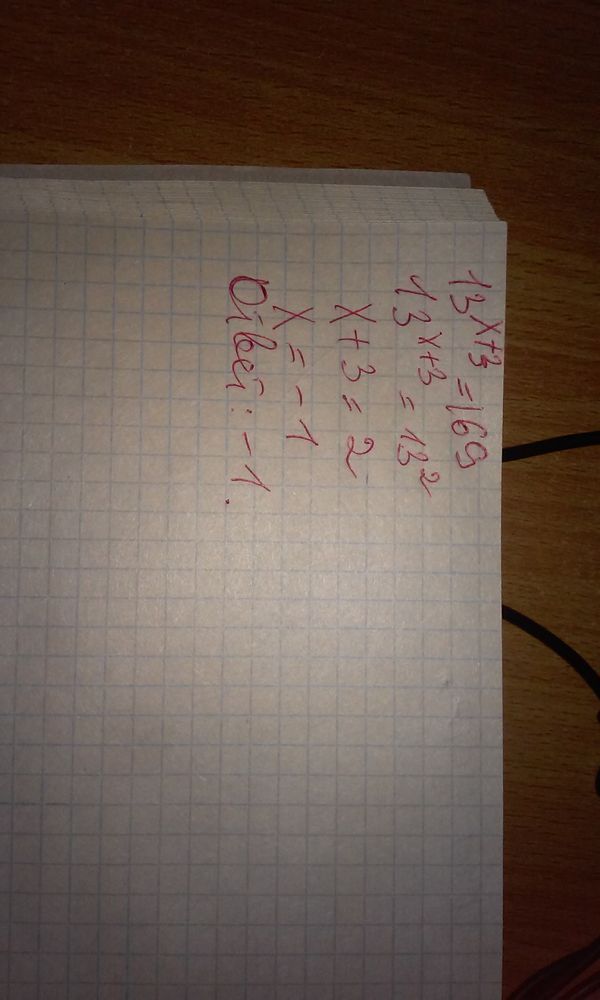 13^{x+3} = 169
13^{x+3} = 13^2
x + 3 = 2
x = -1
Ответ: -1.